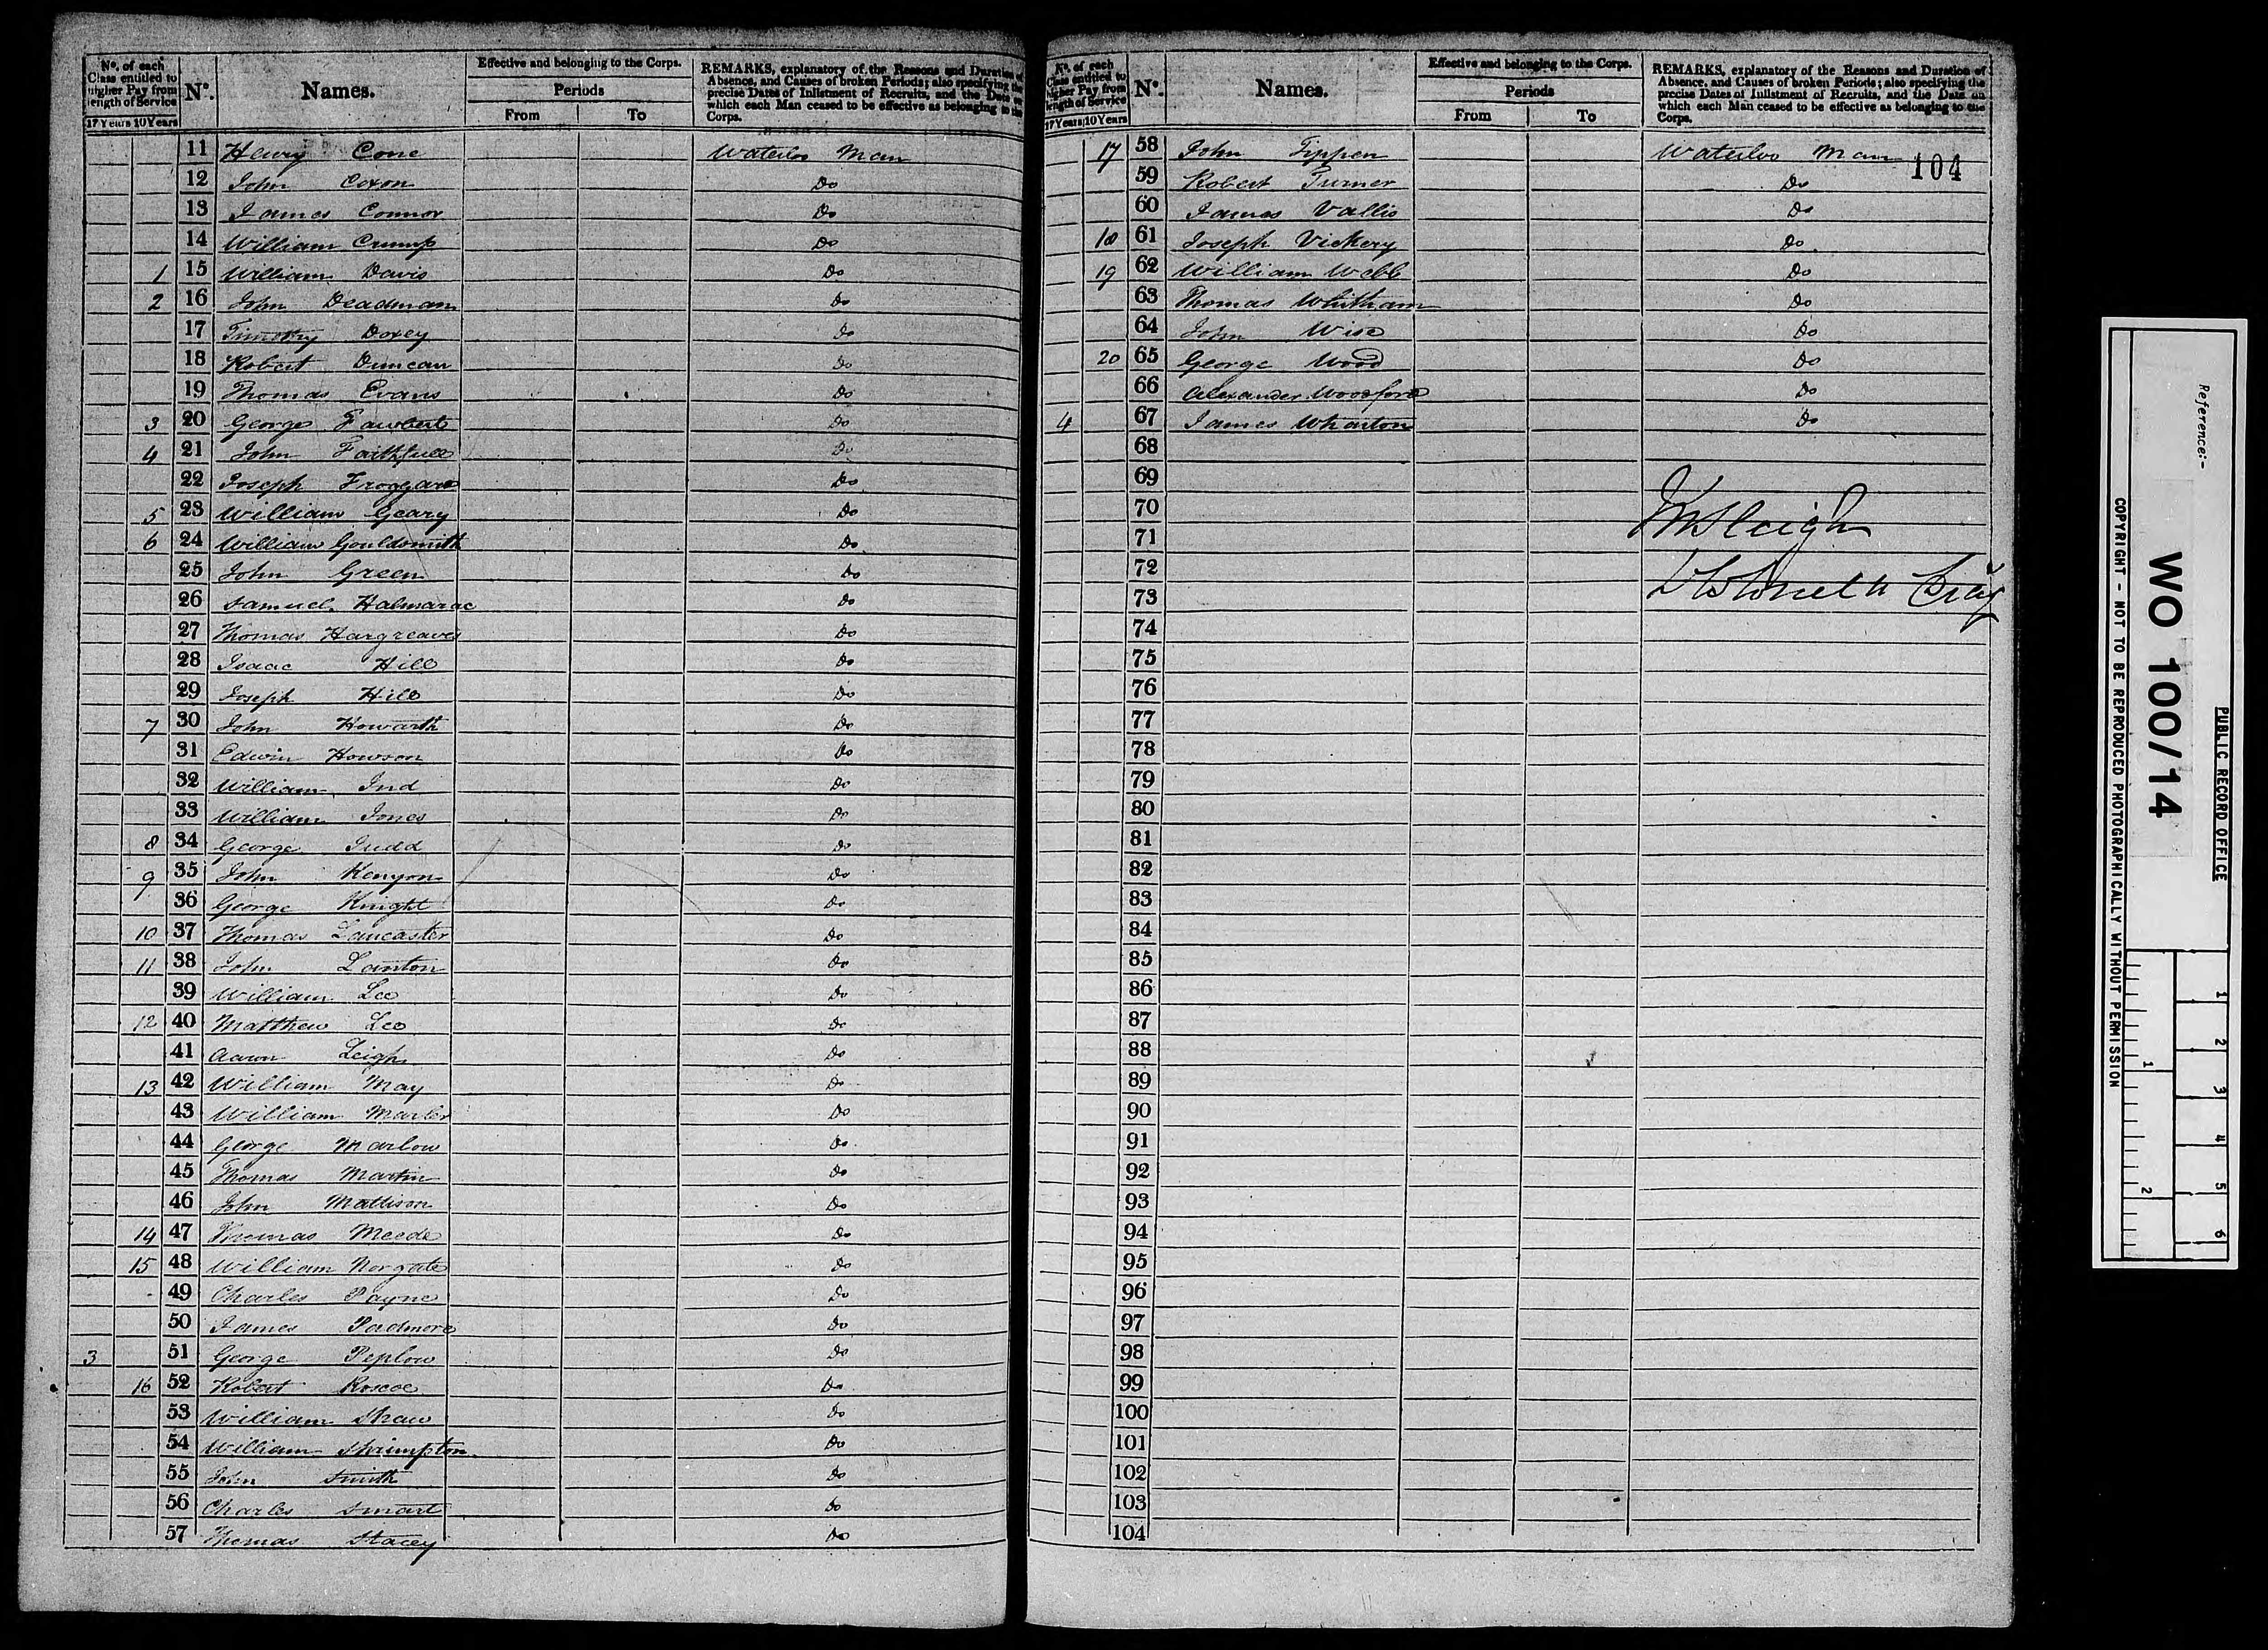 No. of each Class entitled to higher Pay from length of Service
17 Years 10 Years
No. Names.
Effective and belonging to the Corps.
Periods
From To
REMARKS, explanatory of the Reasons and Duration of
Absence, and Causes of broken Periods; also specifying the
precise Dates of Inlistment of Recruits, and the Date on
which each Man ceased to be effective as belonging to the
Corps.
11 Henry Cone Waterloo Man
12 John Coxon Do
13 James Connor Do
14 William Crump Do
1 15 William Davis Do
2 16 John Deadman Do
17 Timothy Doxey Do
18 Robert Duncan Do
19 Thomas Evans Do
3 20 George Fawbert Do
4 21 John Faithfull Do
22 Joseph Froggard Do
5 23 William Geary Do
6 24 William Gouldsmith Do
25 John Green Do
26 Samuel Halmarac Do
27 Thomas Hargreaves Do
28 Isaac Hill Do
29 Joseph Hill Do
7 30 John Howarth Do
31 Edwin Howson Do
32 William Ind Do
33 William Jones Do
8 34 George Judd Do
9 35 John Kenyon Do
36 George Knight Do
10 37 Thomas Lancaster Do
11 38 John Lanton Do
39 William Lee Do
12 40 Matthew Lee Do
41 Aaron Leigh Do
13 42 William May Do
43 William Marler Do
44 George Marlow Do
45 Thomas Martin Do
46 John Mattison Do
14 47 Thomas Meede Do
15 48 William Norgate Do
49 Charles Payne Do
50 James Padmore Do
3 51 George Peplow Do
16 52 Robert Roscoe Do
53 William Shaw Do
54 William Shrimpton Do
55 John Smith Do
56 Charles Smart Do
57 Thomas Stacey Do
No. of each Class entitled to higher Pay from length of Service
17 Years 10 Years
No. Names.
Effective and belonging to the Corps.
Periods
From To
REMARKS, explanatory of the Reasons and Duration of
Absence, and Causes of broken Periods; also specifying the
precise Dates of Inlistment of Recruits, and the Date on
which each Man ceased to be effective as belonging to the
Corps.
104
17 58 John Tippen Waterloo Man
59 Robert Turner Do
60 James Vallis Do
18 61 Joseph Vickery Do
19 62 William Webb Do
63 Thomas Whitham Do
64 John Wise Do
20 65 George Wood Do
66 Alexander Woodford Do
4 67 James Wharton Do
68
69
70
71 Sleigh
72
73
74
75
76
77
78
79
80
81
82
83
84
85
86
87
88
89
90
91
92
93
94
95
96
97
98
99
100
101
102
103
104
Reference:-
PUBLIC RECORD OFFICE
WO 100/14
COPYRIGHT - NOT TO BE REPRODUCED PHOTOGRAPHICALLY WITHOUT PERMISSION
1 2 3 4 5 6
1 2